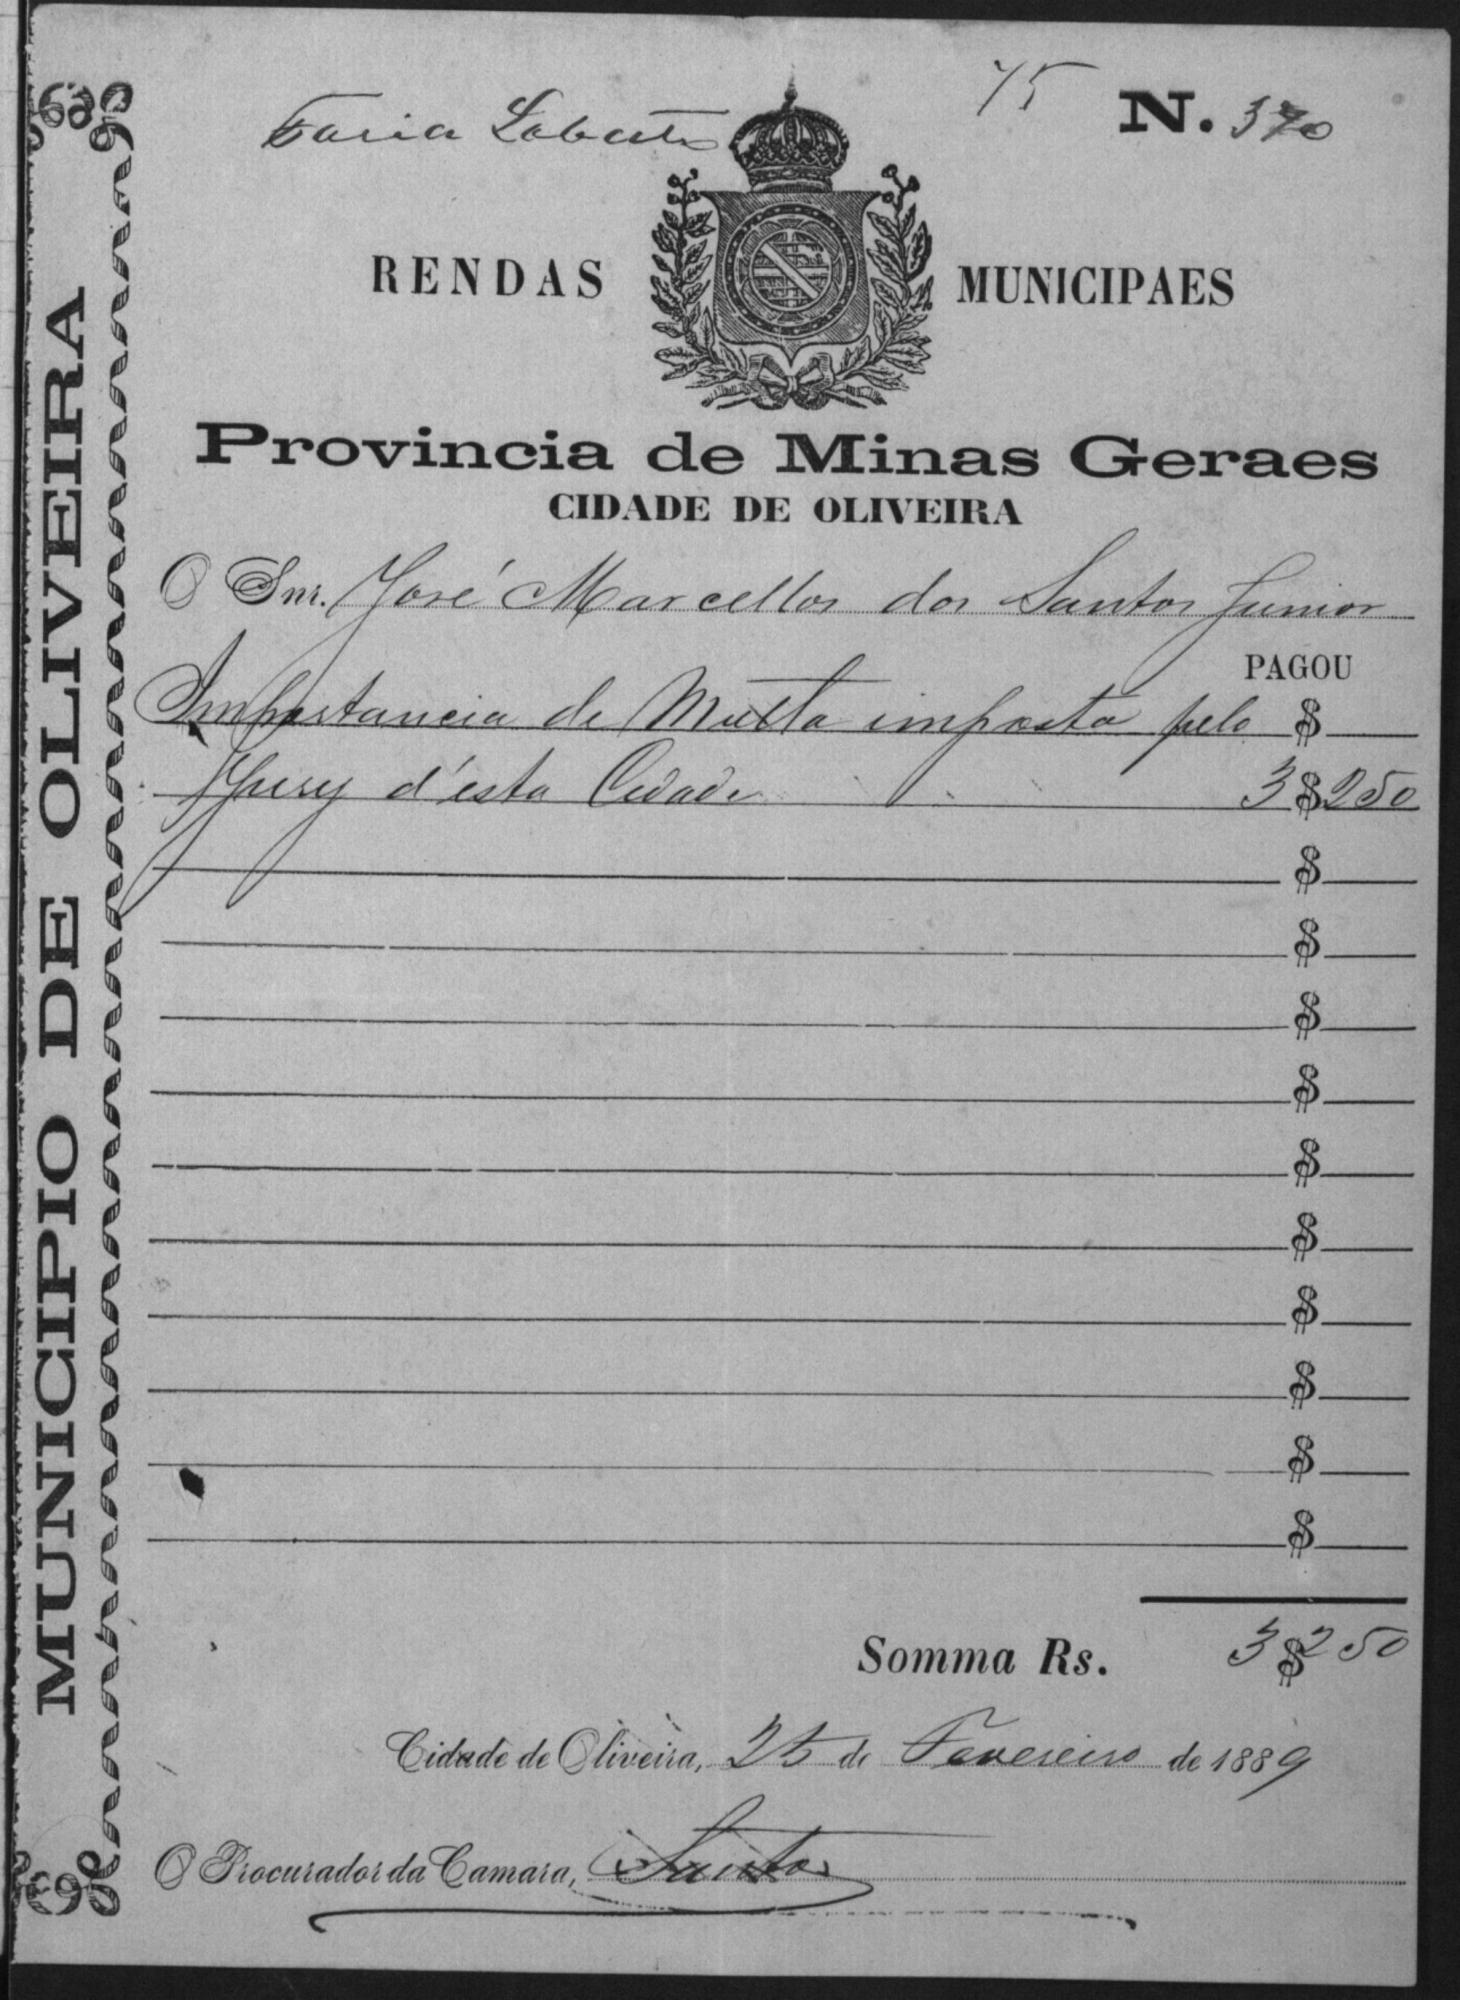 75
N. 370
Faria Lobato
RENDAS MUNICIPAES
Provincia de Minas Geraes
CIDADE DE OLIVEIRA
O Snr. José Marcellos dos Santos Junior
PAGOU
Importancia de Multa imposta pelo $
Jury d'esta Cidade 3$250
$
$
$
$
$
$
$
$
$
$
Somma Rs. 3$250
Cidade de Oliveira, 25 de Fevereiro de 1889
O Procurador da Camara, Santos
MUNICIPIO DE OLIVEIRA